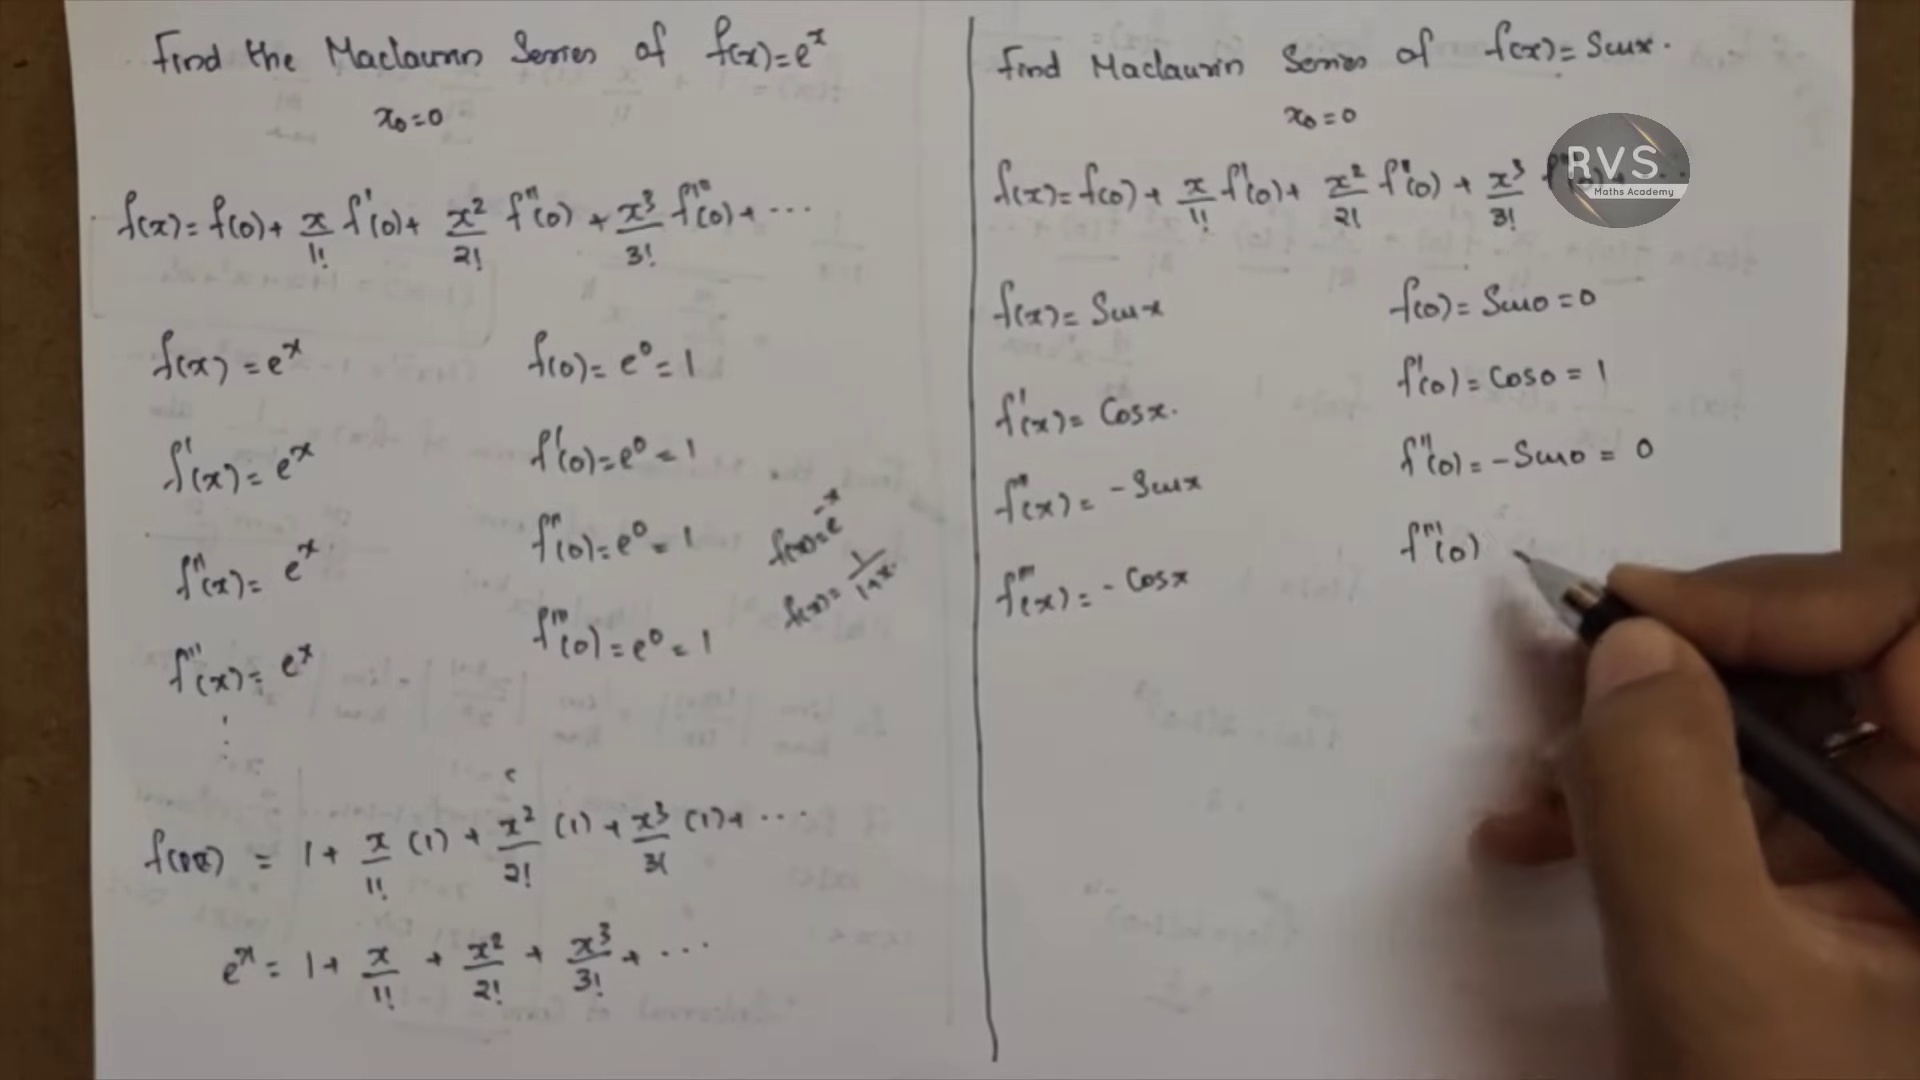 Find the Maclaurin Series of f(x)=e^x
x₀=0
f(x)=f(0)+ x/1! f'(0)+ x²/2! f''(0) + x³/3! f'''(0)+ ...
f(x)=e^x f(0)=e⁰=1
f'(x)=e^x f'(0)=e⁰=1
f''(x)= e^x f''(0)=e⁰=1
f'''(x)= e^x f'''(0)=e⁰=1
f(x)=e^-x
f(x)= 1/1+x.
= 1+ x/1! (1) + x²/2! (1) + x³/3! (1)+ ...
e^x= 1+ x/1! + x²/2! + x³/3! + ...
Find Maclaurin Series of f(x)= Sinx.
x₀=0
f(x)=f(0)+ x/1! f'(0)+ x²/2! f''(0) + x³/3!
RVS
Maths Academy
f(x)= Sinx f(0)= Sin0=0
f'(x)= Cosx. f'(0)= Cos0=1
f''(x)= -Sinx f''(0)= -Sin0= 0
f'''(x)= -Cosx f'''(0)